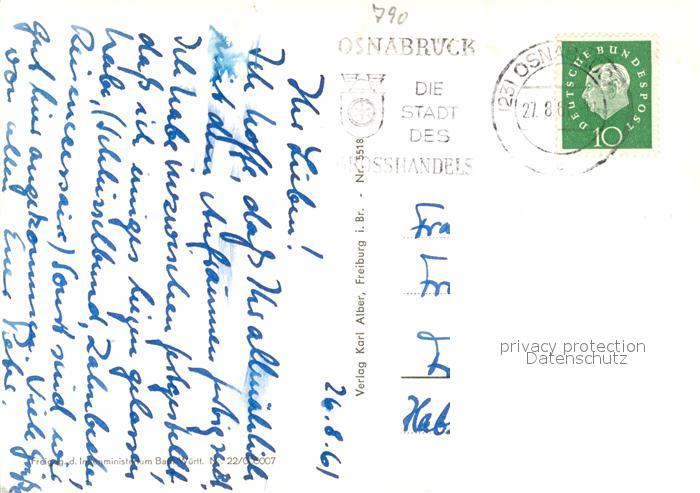 790
OSNABRÜCK
DIE
STADT
DES
GROSSHANDELS
(23) OSNAB
27.8.6
DEUTSCHE BUNDESPOST
10
26.8.61
Ihr Lieben!
Ich hoffe, daß Ihr allmählich
mit dem Aufräumen fertig seid.
Ich habe inzwischen festgestellt,
daß ich einiges liegen gelassen
habe, (Schlüsselbund, Zahnbecher,
Reisenecessair) Sonst sind wir
gut hier angekommen. Viele Grüße
von allen Eure Liebe.
Verlag Karl Alber, Freiburg i. Br. - Nr. 5518
Freigeg. d. Innenministerium Bad.-Württ. Nr. 22/
Fra
Fr
Hab.
privacy protection
Datenschutz